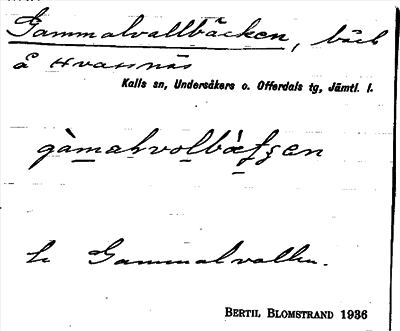 Gammalvallbäcken, bäck
å Hvassnäs
Kalls sn, Undersåkers o. Offerdals tg, Jämtl. l.
gàmalvolbæ̀ʄʂen
t. Gammalvallen.
BERTIL BLOMSTRAND 1936